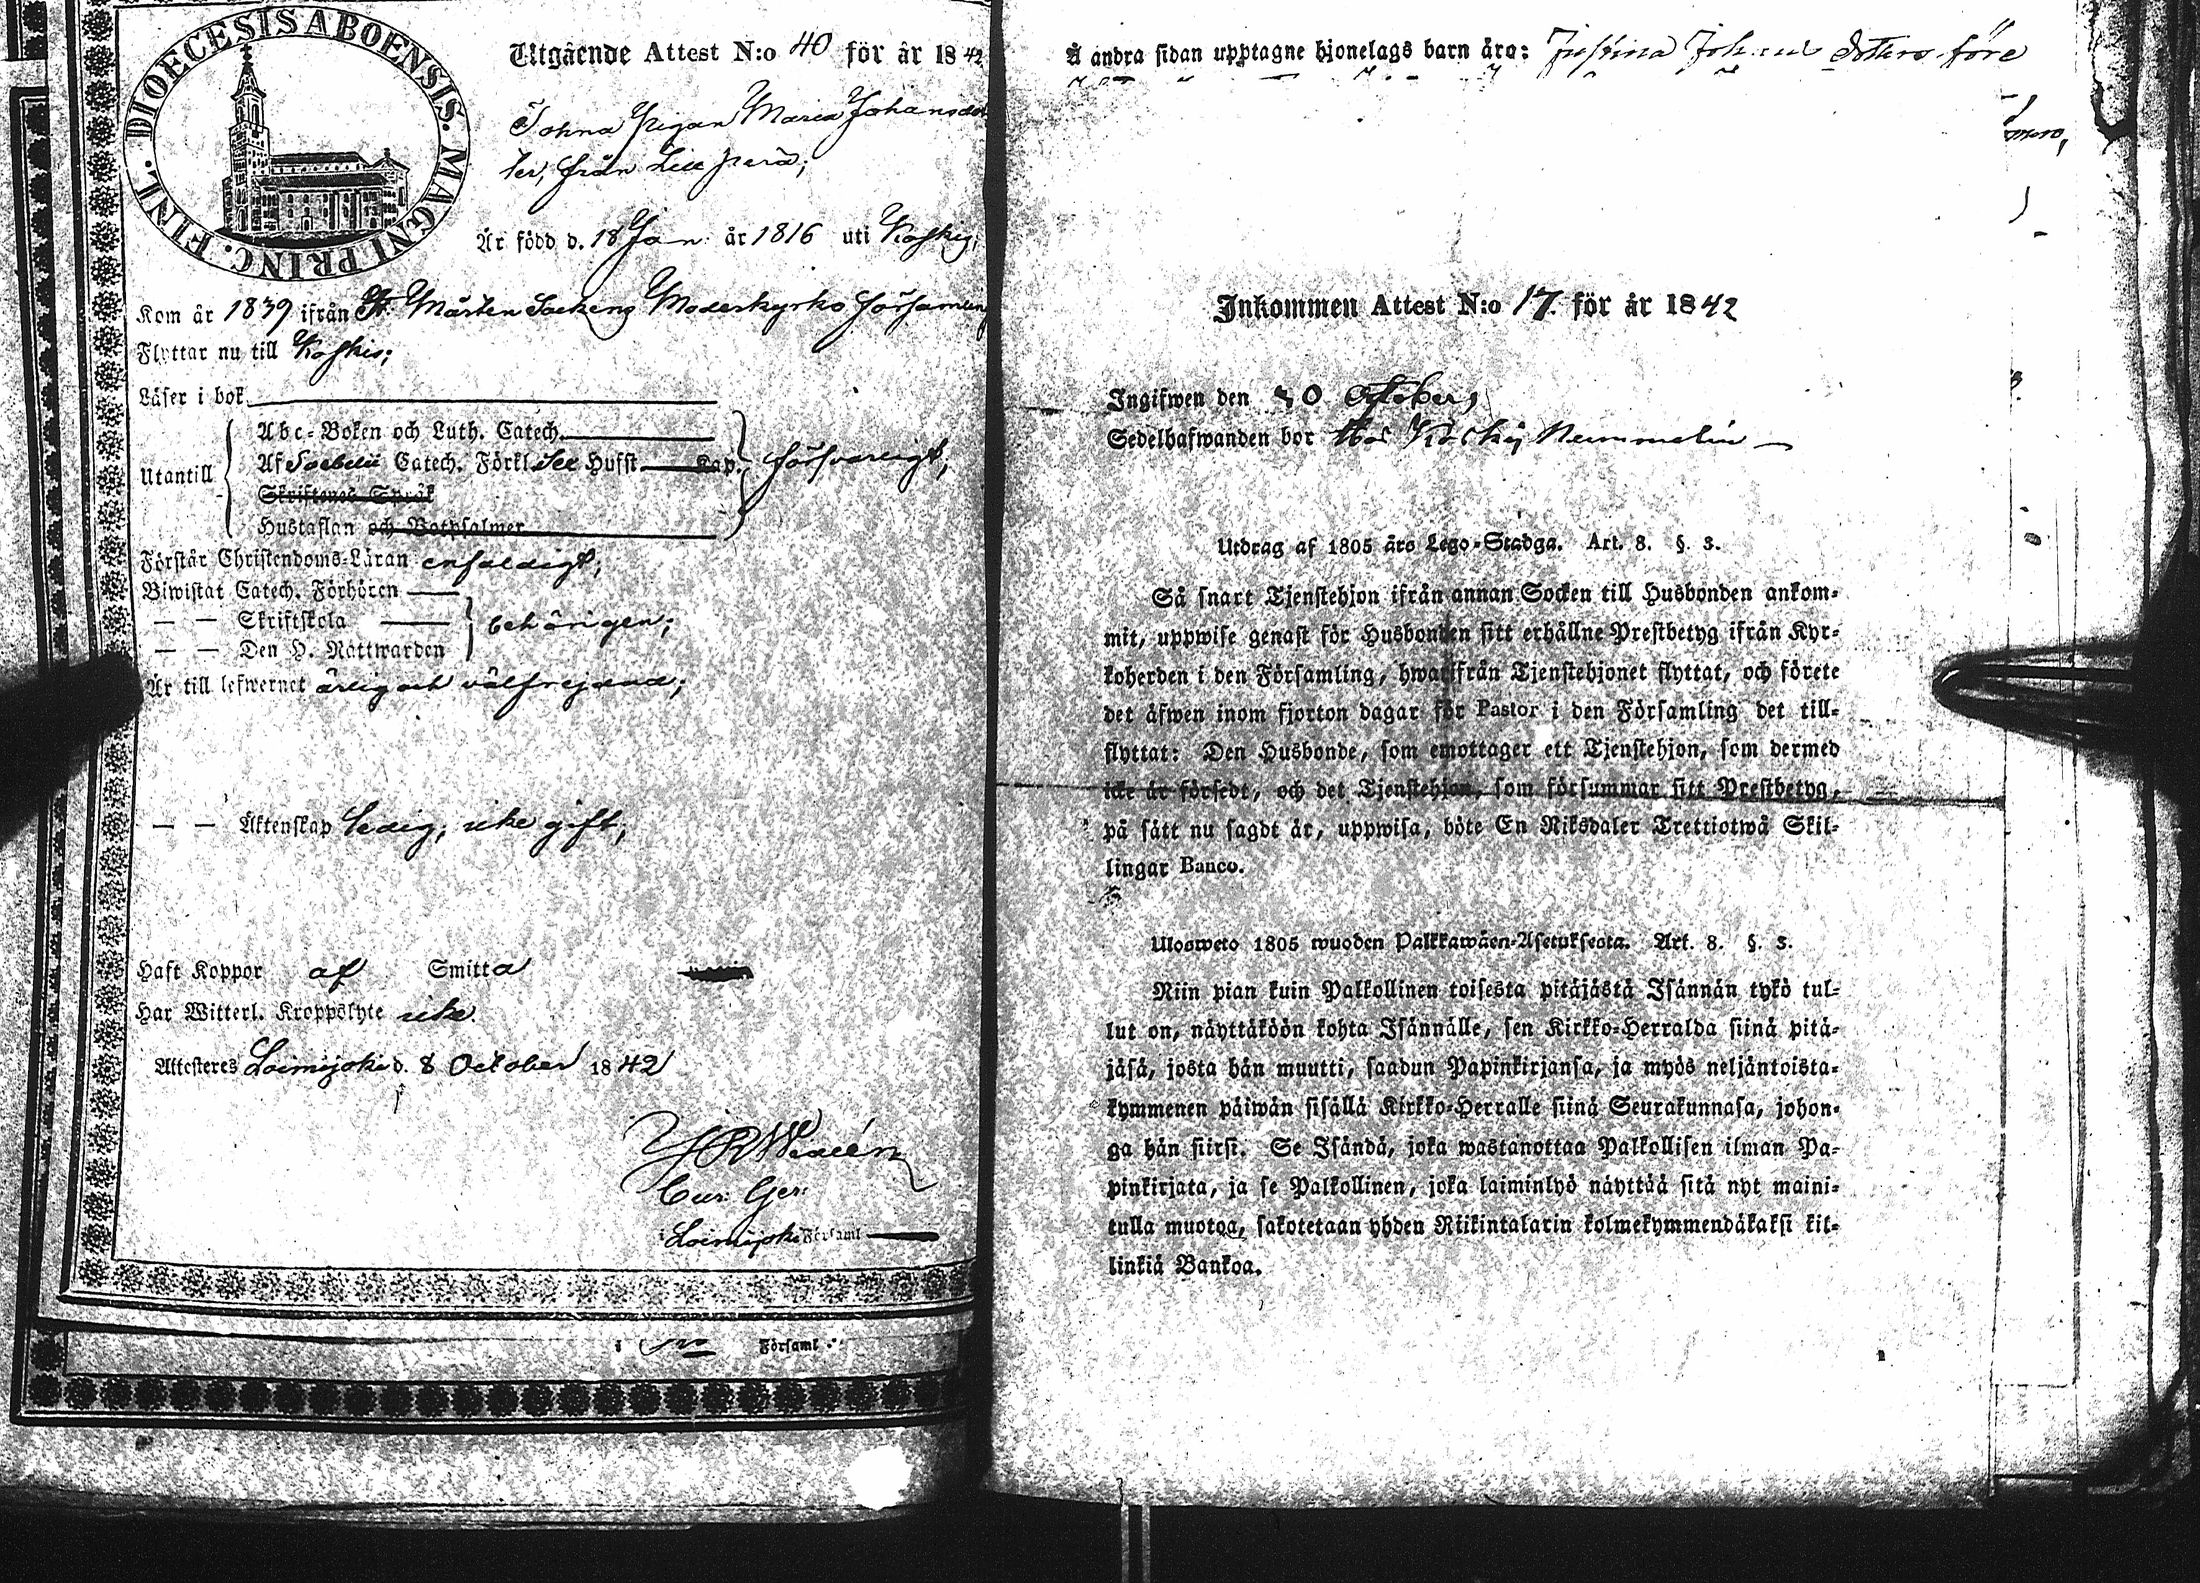 DIOECESIS ABOENSIS. MAGNI PRINC. FINL.
Utgående Attest N:o 40 för år 1842
Tohna Pigan Maria Johansdot
ter, från Lill perä;
Är född d. 18 Jan: år 1816 uti Koskis;
Kom år 1839 ifrån St Mårten Sockens Moderkyrko församling
Flyttar nu till Koskis;
Läser i bok
Utantill
Abc-Boken och Luth. Catech.
Af Swebelii Catech. Förkl. Hufst. Kap. försvarligt,
Skriftenes Språk
Hustaflan och Botpsalmer
Förstår Christendoms-Läran enfaldigt;
Biwistat Catech. Förhören
— — Skriftskola behörigen;
— — Den H. Nattwarden
Är till lefwernet ärlig och välfrejdad;
— — Äktenskap ledig, icke gift,
Haft Koppor af Smitta
Har Witterl. Kroppslyte icke.
Attesteres Loimijoki d. 8 October 1842
Cur: Ger:
i Loimijoki Församl
i Församl.
Å andra sidan upptagne hjonelags barn äro: Justina Johans dotter före
Inkommen Attest N:o 17. för år 1842
Ingifwen den October,
Sedelhafwanden bor Hos Nummelin
Utdrag af 1805 års Lego-Stadga. Art. 8. §. 3.
Så snart Tjenstehjon ifrån annan Socken till Husbonden ankom-
mit, uppwise genast för Husbonden sitt erhållne Prestbetyg ifrån Kyr-
koherden i den Församling, hwarifrån Tjenstehjonet flyttat, och förete
det äfwen inom fjorton dagar för Pastor i den Församling det till-
flyttat: Den Husbonde, som emottager ett Tjenstehjon, som dermed
icke är försedt, och det Tjenstehjon, som försummar sitt Prestbetyg,
på sätt nu sagdt är, uppwisa, böte En Riksdaler Trettiotwå Skil-
lingar Banco.
Ulosweto 1805 wuoden Palkkawäen-Asetuksesta. Art. 8. §. 3.
Niin pian kuin Palkollinen toisesta pitäjästä Isännän tykö tul-
lut on, näyttäköön kohta Isännälle, sen Kirkko-Herralda siinä pitä-
jäsä, josta hän muutti, saadun Papinkirjansa, ja myös neljäntoista-
kymmenen päiwän sisällä Kirkko-Herralle siinä Seurakunnasa, johon-
ga hän siirsi. Se Isändä, joka wastanottaa Palkollisen ilman Pa-
pinkirjata, ja se Palkollinen, joka laiminlyö näyttää sitä nyt maini-
tulla muotoa, sakotetaan yhden Riikintalarin kolmekymmendäkaksi kil-
linkiä Bankoa.